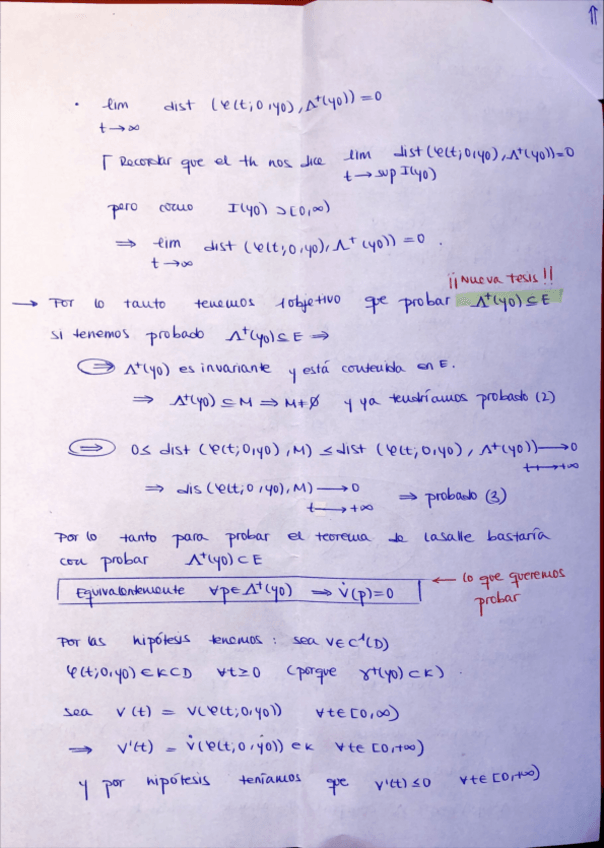 ⇑
• lim dist (φ(t;0,y0), Λ⁺(y0)) = 0
t→∞
⌈ Recordar que el th nos dice lim dist(φ(t;0,y0), Λ⁺(y0))=0
t→sup I(y0)
pero como I(y0) ⊃ [0,∞)
⇒ lim dist (φ(t;0,y0), Λ⁺(y0)) = 0.
t→∞
¡¡Nueva tesis!!
→ Por lo tanto tenemos 1 objetivo que probar Λ⁺(y0) ⊆ E
si tenemos probado Λ⁺(y0) ⊆ E ⇒
⇒ Λ⁺(y0) es invariante y está contenida en E.
⇒ Λ⁺(y0) ⊆ M ⇒ M ≠ ∅ y ya tendríamos probado (2)
⇒ 0 ≤ dist (φ(t;0,y0), M) ≤ dist (φ(t;0,y0), Λ⁺(y0)) → 0
t→+∞
⇒ dis (φ(t;0,y0), M) → 0 ⇒ probado (3)
t→+∞
Por lo tanto para probar el teorema de Lasalle bastaría
con probar Λ⁺(y0) ⊂ E
Equivalentemente ∀p∈Λ⁺(y0) ⇒ V̇(p)=0 ← lo que queremos
probar
Por las hipótesis tenemos: sea V∈C¹(D)
φ(t;0,y0) ∈ K ⊂ D ∀t≥0 (porque γ⁺(y0) ⊂ K).
sea v(t) = V(φ(t;0,y0)) ∀t∈[0,∞)
⇒ V'(t) = V̇(φ(t;0,ẏ0)) ∈ K ∀t∈[0,+∞)
y por hipótesis teníamos que v'(t) ≤ 0 ∀t∈[0,+∞)